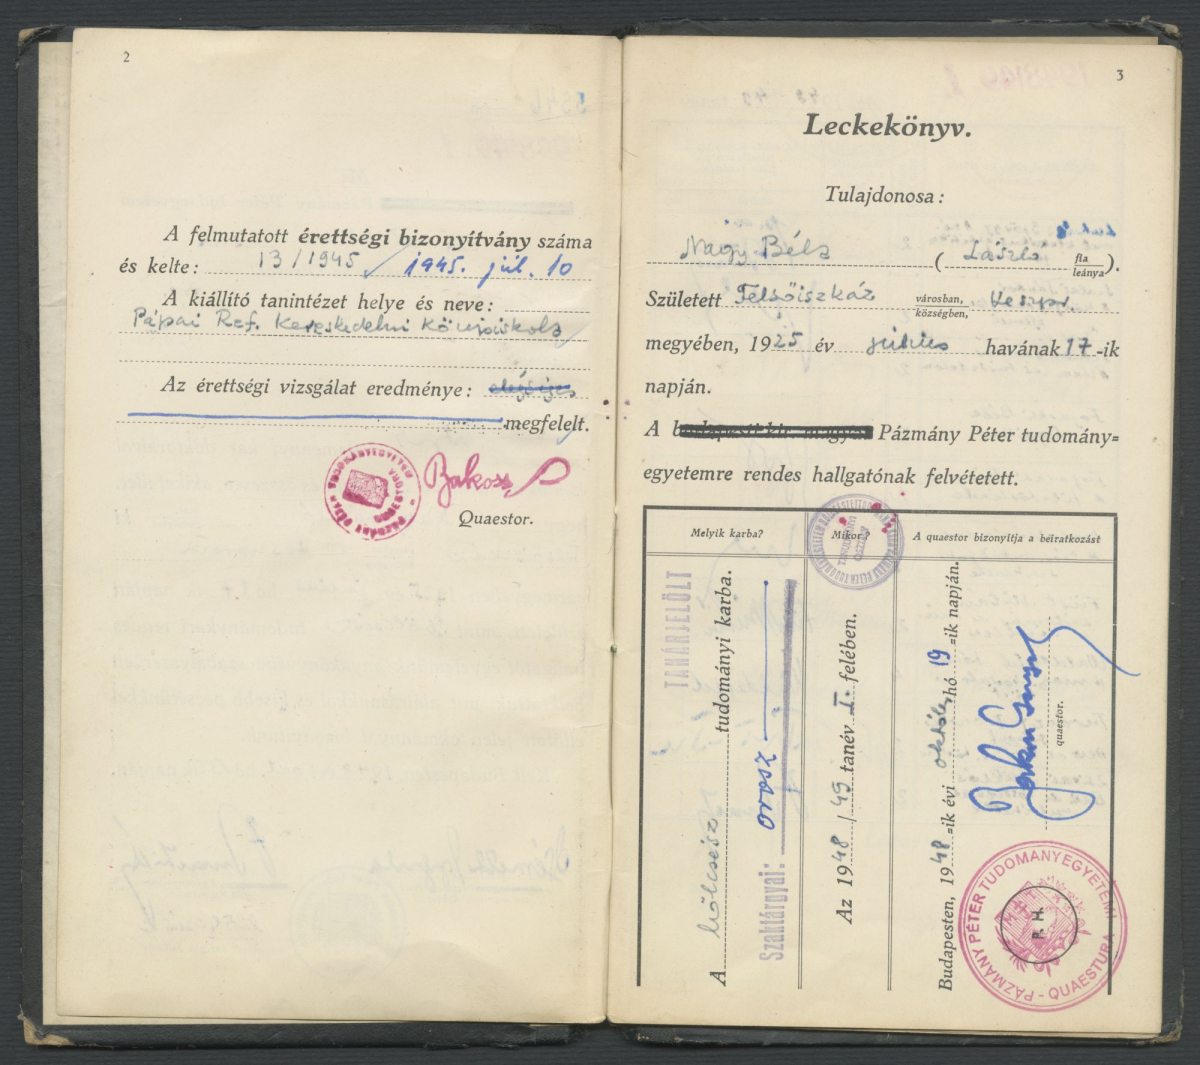 2
A felmutatott érettségi bizonyítvány száma
és kelte: 13/1945 / 1945. júl. 10
A kiállító tanintézet helye és neve:
Pápai Ref. Kereskedelmi Középiskola
Az érettségi vizsgálat eredménye: elégséges
megfelelt.
PÁZMÁNY PÉTER TUDOMÁNYEGYETEM QUAESTORA
Bakos
Quaestor.
3
Leckekönyv.
Tulajdonosa:
Nagy Béla ( László fia
leánya).
Született Felsőiszkáz városban,
községben, Veszpr.
megyében, 1925 év július havának 17-ik
napján.
A budapesti kir. magyar Pázmány Péter tudomány=
egyetemre rendes hallgatónak felvétetett.
Melyik karba?
Mikor?
A quaestor bizonyítja a beiratkozást
TANÁRJELÖLT
A bölcsész tudományi karba.
Szaktárgyai: orosz
Az 1948/49 tanév I. felében.
Budapesten, 1948=ik évi október hó 19=ik napján.
quaestor.
PÁZMÁNY PÉTER TUDOMÁNYEGYETEMI - QUAESTURA
P. H.